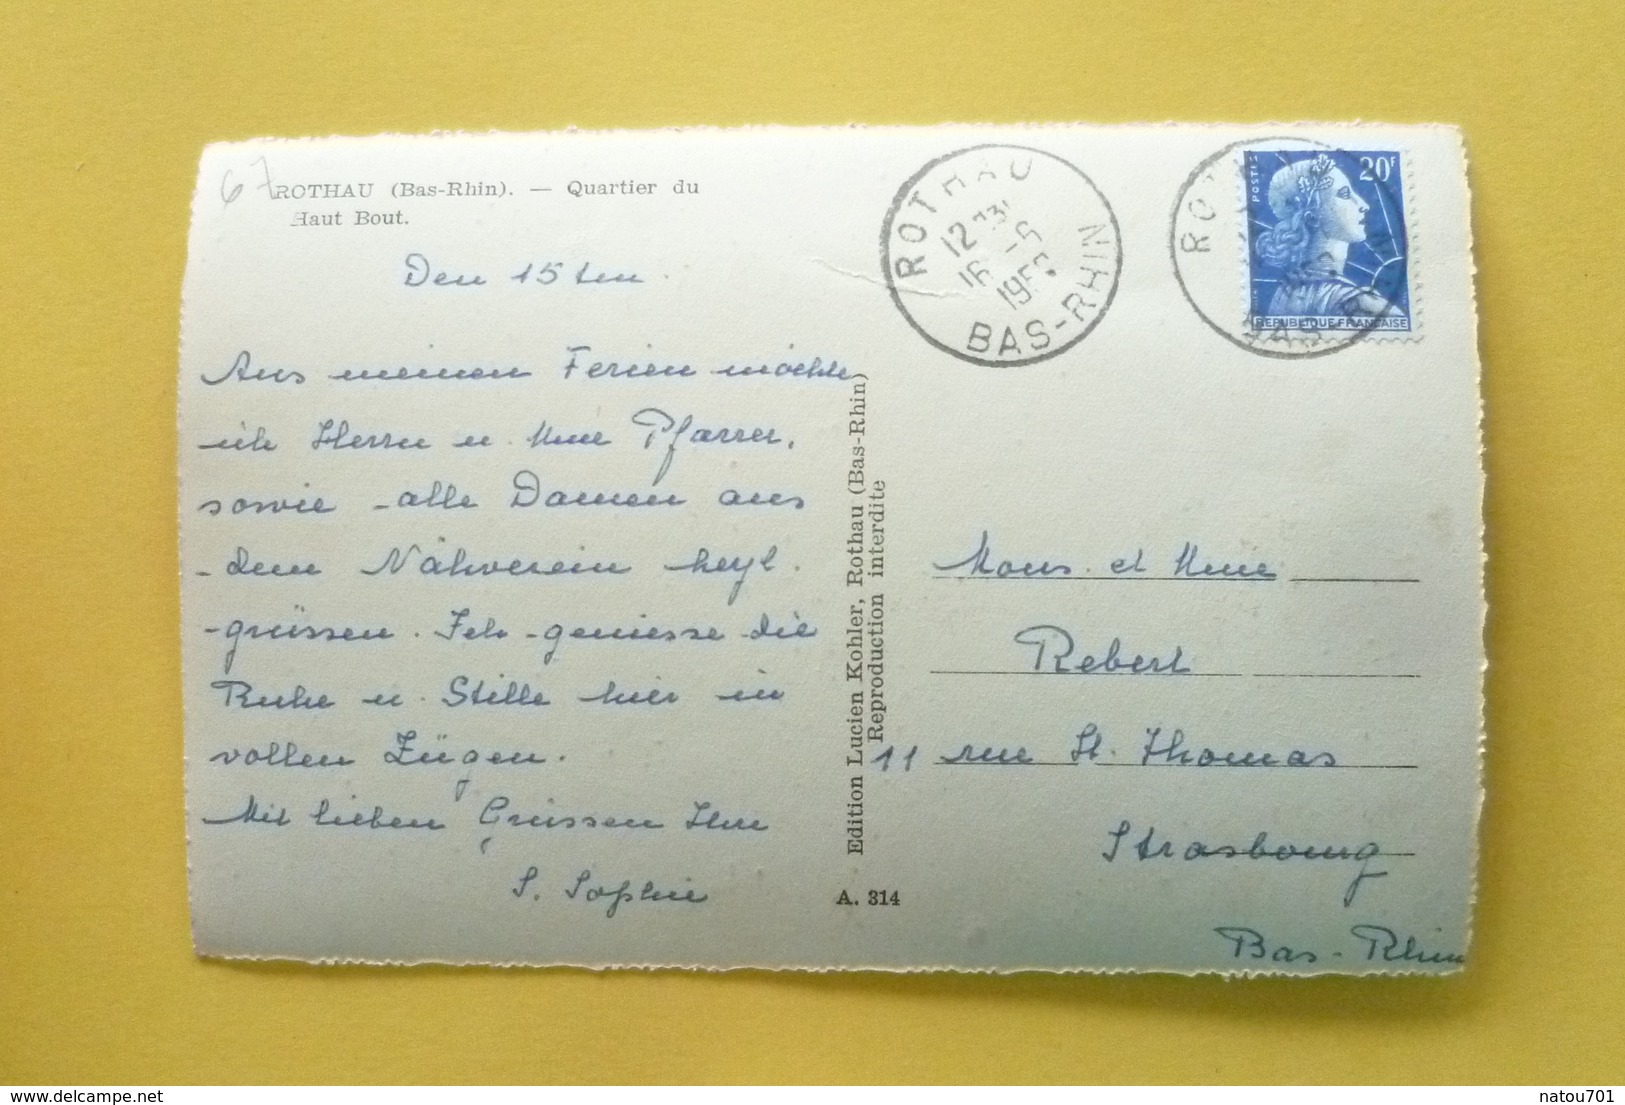 67
ROTHAU (Bas-Rhin). — Quartier du
Haut Bout.
Den 15ten.
Aus meinen Ferien möchte
ich Herrn u. Mme Pfarrer,
sowie alle Damen aus
dem Nähverein hezl.
grüssen. Ich geniesse die
Ruhe u. Stille hier in
vollen Zügen.
Mit lieben Grüssen Ihre
S. Sophie
Edition Lucien Kohler, Rothau (Bas-Rhin)
Reproduction interdite
A. 314
ROTHAU
12
16 -6
BAS-RHIN
POSTES
20F
REPUBLIQUE FRANÇAISE
Mons. et Mme
Rebert
11 rue St. Thomas
Strasbourg
Bas-Rhin
natou701